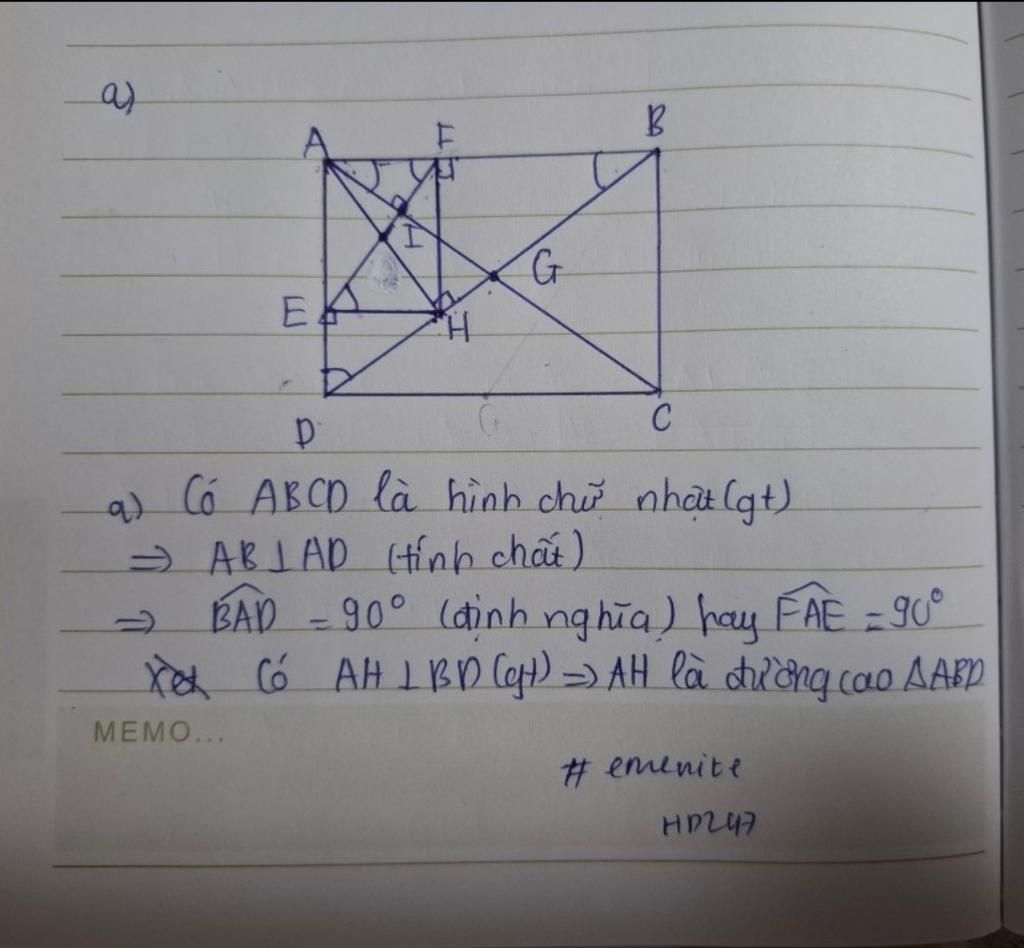 a)
A F B
I G
E H
G
D C
a) Có ABCD là hình chữ nhật (gt)
⇒ AB⊥AD (tính chất)
⇒ B̂AD = 90° (định nghĩa) hay F̂AE = 90°
Có AH⊥BD (gt) ⇒ AH là đường cao ΔABD
MEMO...
# emenite
HD247